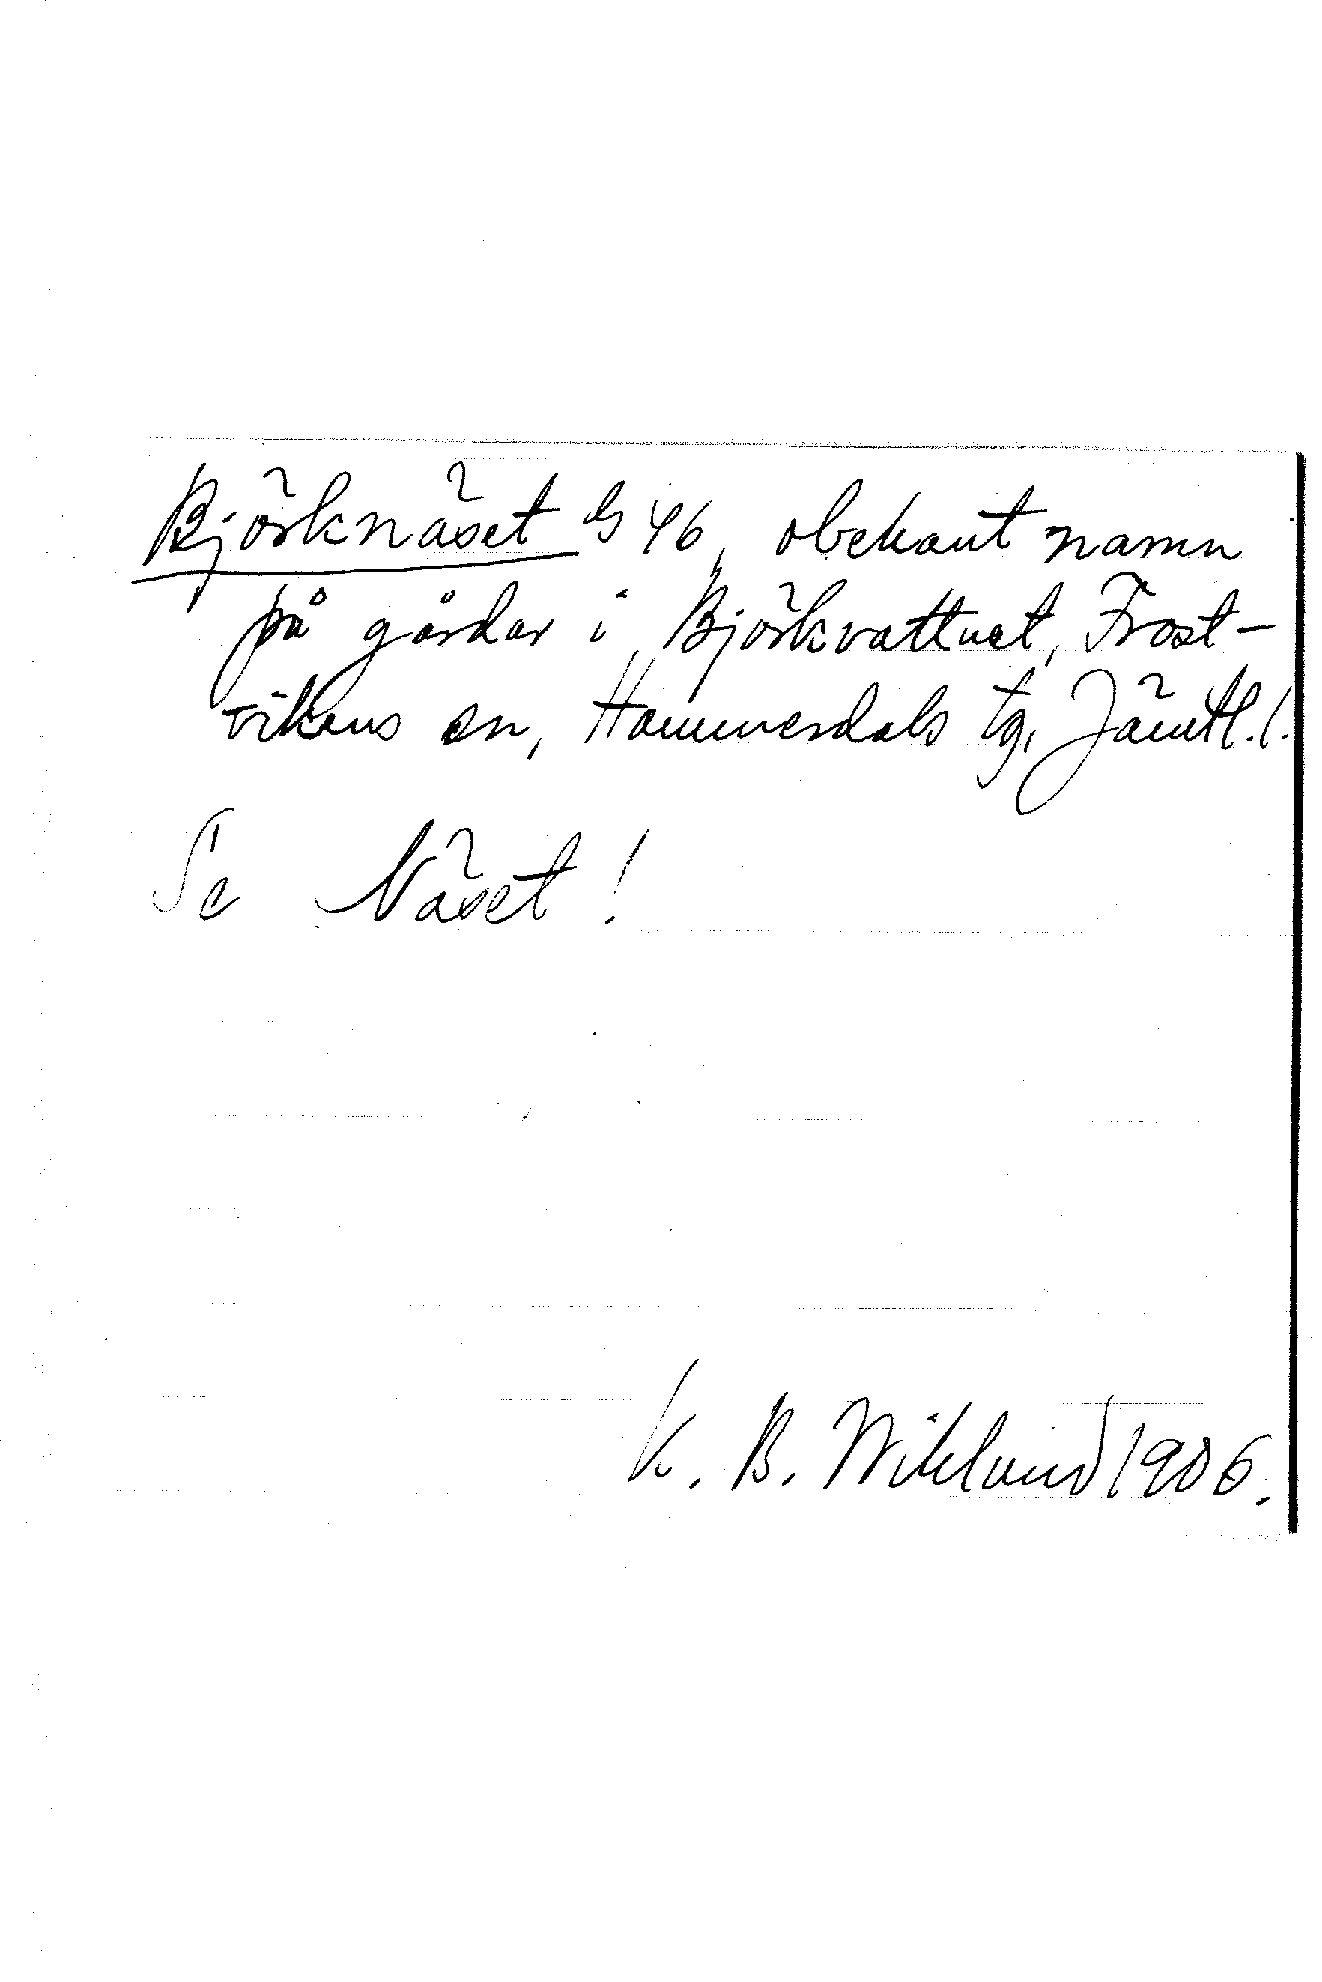 Björknäset G 46, obekant namn
på gårdar i Björkvattnet, Frost-
vikens sn, Hammerdals tg, Jämtl. l.
Se Näset!
K. B. Wiklund 1906.